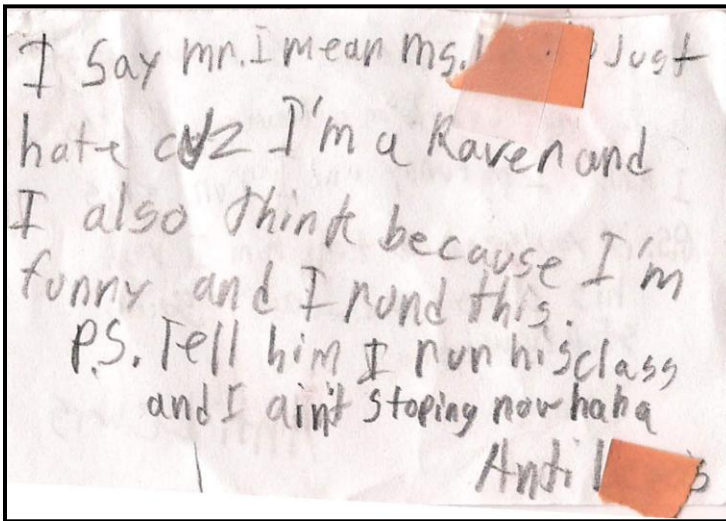 I Say mr. I mean ms. Just
hate cuz I'm a Raven and
I also think because I'm
funny and I rund this.
P.S. Tell him I run his class
and I ain't stoping now haha
Anti